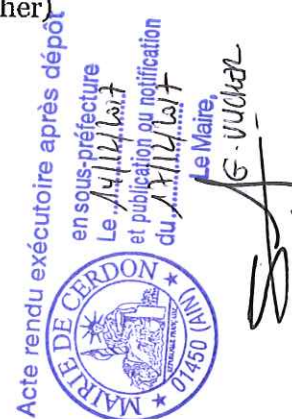 her)
Acte rendu exécutoire après dépôt
en sous-préfecture
Le 14/12/2017
et publication ou notification
du 17/12/2017
Le Maire,
G. VUCHER
MAIRIE DE CERDON
01450 (AIN)